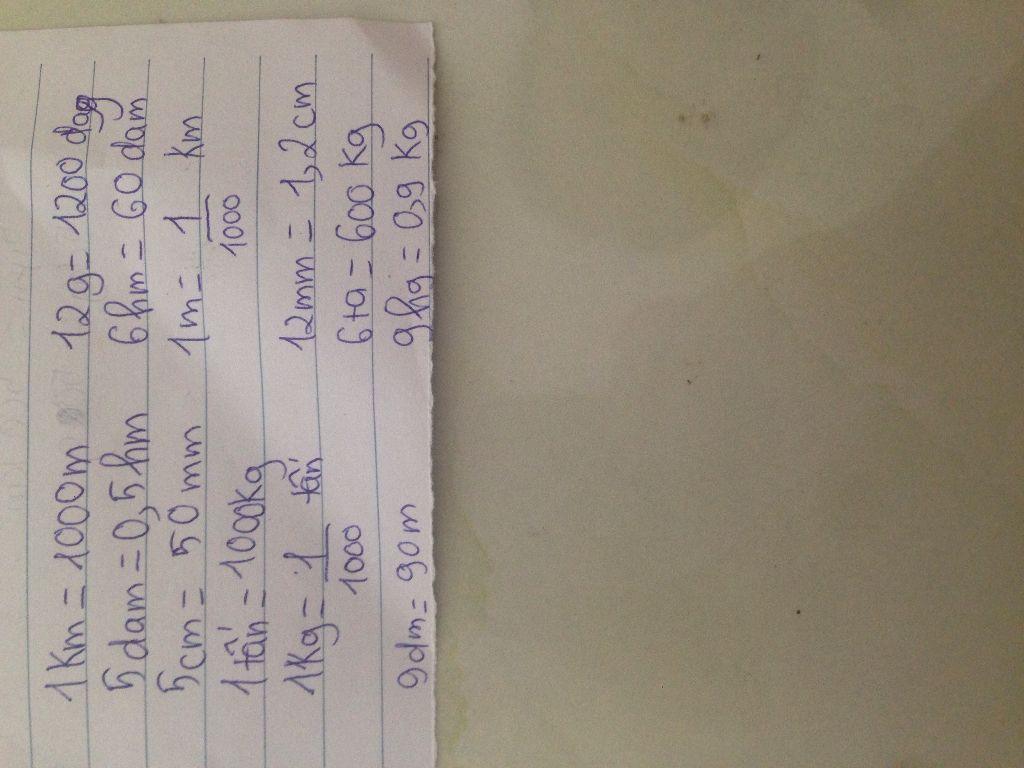 1 Km = 1000m 12g = 1200 dag
5 dam = 0,5 hm 6 hm = 60 dam
5 cm = 50 mm 1m = 1/1000 km
1 tấn = 1000Kg
1 Kg = 1/1000 tấn 12mm = 1,2 cm
6 ta = 600 Kg
9dm = 90m 9hg = 0,9 Kg